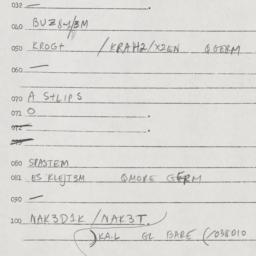 032 —
040 BUZ84/3M
050 KROG+ /KRAHZ/XZEN QGERM
060 —
070 A S+LIPS
071 O
072 —
080 SPASTEM
081 ES KLEJT3M QMORE GERM
090 —
100 NAK3D1K / NAK3T.
KAIL GL BARE (/038010